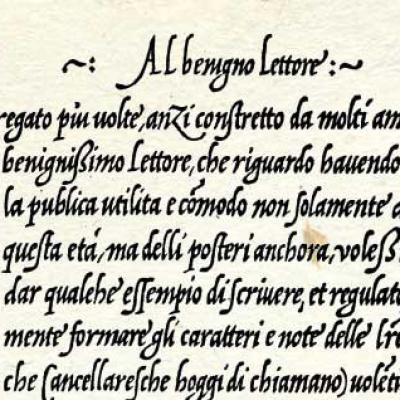 ~: Al benigno lettore :~
regato piu uolte, anzi constretto da molti am
benignißimo Lettore, che riguardo hauendo
la publica utilita e cõmodo non solamente d
questa etá, ma delli posteri anchora, voleß
dar qualche essempio di scriuere, et regulata
mente formare gli caratteri e note delle lr̃e
che (ancellaresche hoggi di chiamano) uolẽti